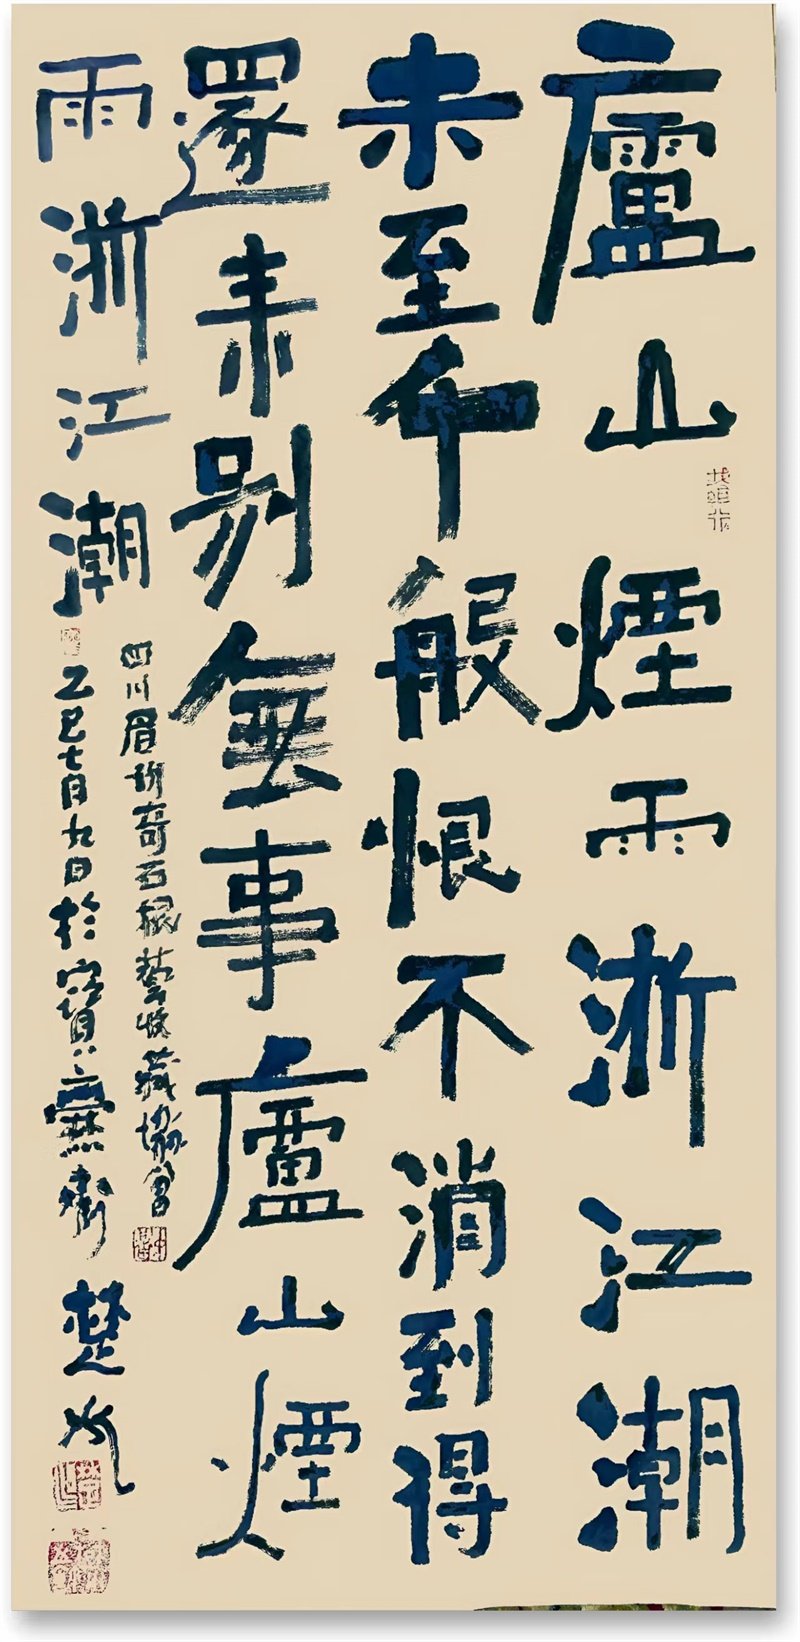 廬山煙雨浙江潮
未至千般恨不消到得
還来别無事廬山煙
雨浙江潮
四川眉州奇石根藝收藏協會
乙巳七月九日於寶